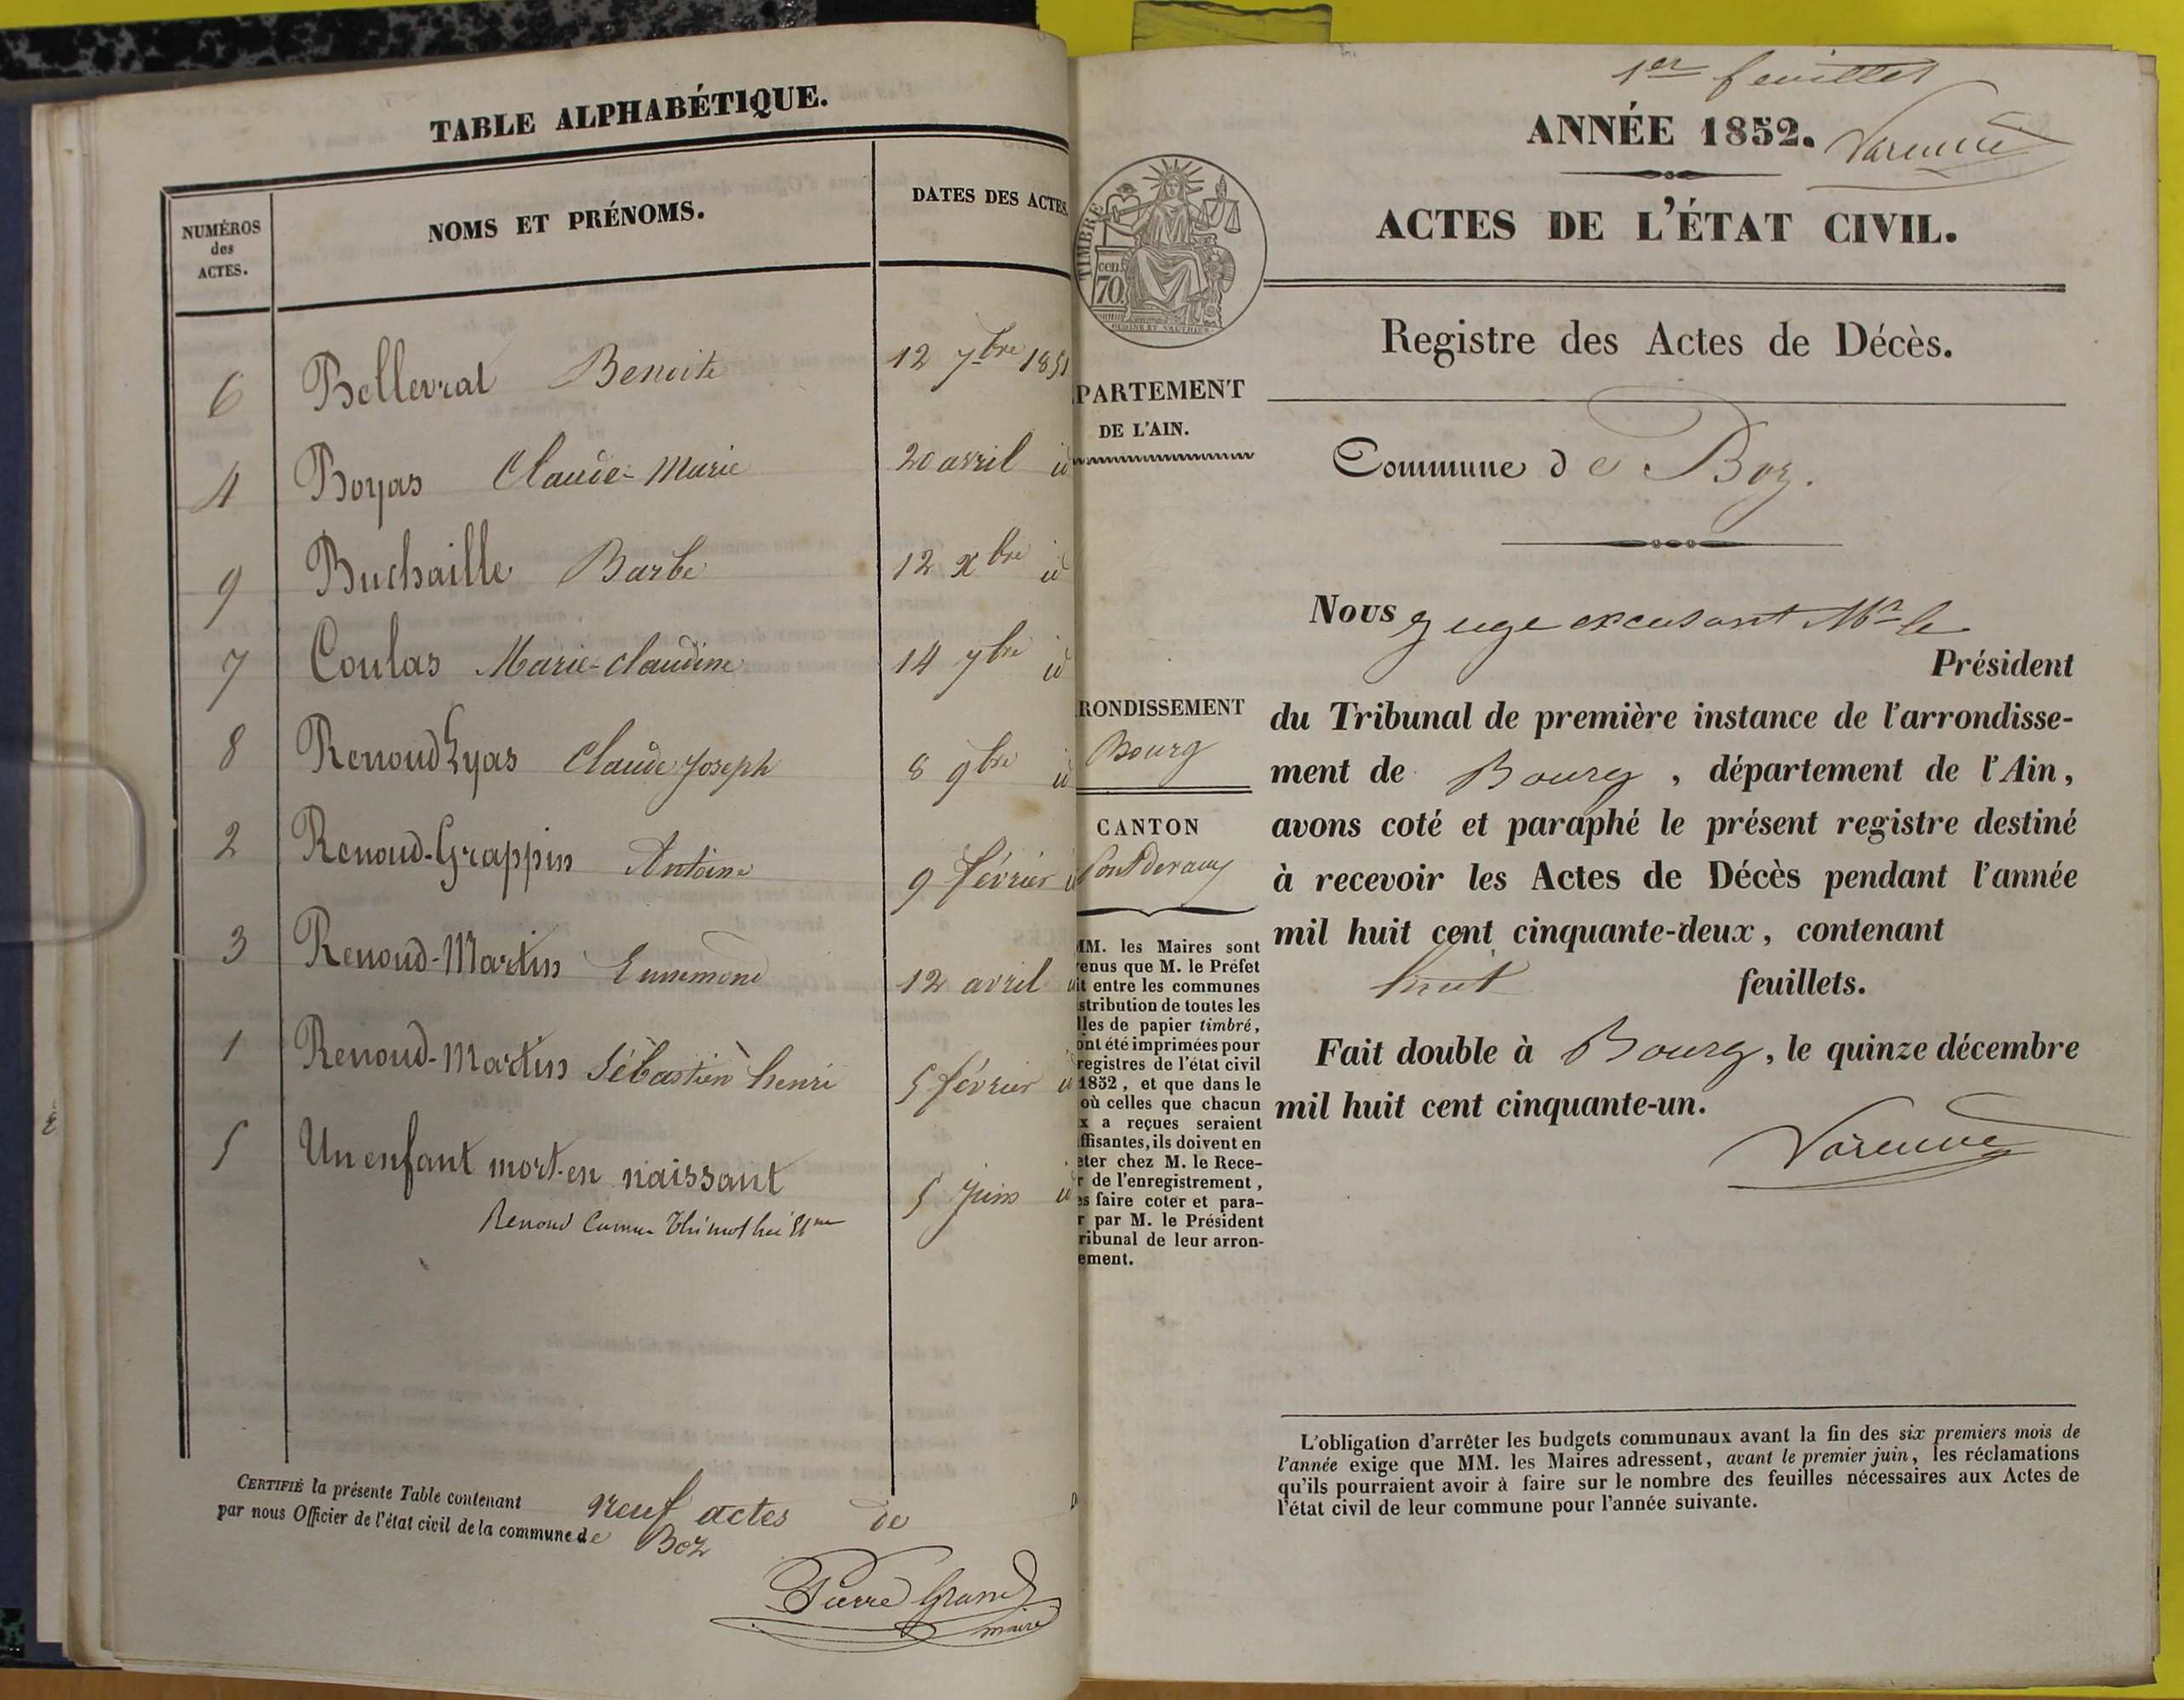 TABLE ALPHABÉTIQUE.
NUMÉROS des ACTES.
NOMS ET PRÉNOMS.
DATES DES ACTES
6 Bellevrat Benoite 12 7bre 1851
4 Boyas Claude-Marie 20 avril id
9 Buchaille Barbe 12 xbre id
7 Coulas Marie-claudine 14 7bre id
8 Renoud Lyas Claude Joseph 8 9bre id
2 Renoud-Grappin Antoine 9 février id
3 Renoud-Martin Ennemond 12 avril id
1 Renoud-Martin Sébastien henri 5 février id
5 Un enfant mort-en naissant 5 Juin id
Renoud Camus
CERTIFIÉ la présente Table contenant neuf actes de
par nous Officier de l'état civil de la commune de Boz
Pierre Grand
maire
1er feuillet
ANNÉE 1852.
Varenne
ACTES DE L'ÉTAT CIVIL.
TIMBRE
cen.
70
Registre des Actes de Décès.
PARTEMENT
DE L'AIN.
Commune de Boz.
RONDISSEMENT
Bourg
CANTON
Pontdevaux
MM. les Maires sont
enus que M. le Préfet
it entre les communes
stribution de toutes les
lles de papier timbré,
ont été imprimées pour
registres de l'état civil
1852, et que dans le
où celles que chacun
x a reçues seraient
ffisantes, ils doivent en
eter chez M. le Rece-
r de l'enregistrement,
es faire coter et para-
r par M. le Président
ribunal de leur arron-
ement.
Nous Juge excusant Mr le
Président
du Tribunal de première instance de l'arrondisse-
ment de Bourg, département de l'Ain,
avons coté et paraphé le présent registre destiné
à recevoir les Actes de Décès pendant l'année
mil huit cent cinquante-deux, contenant
huit feuillets.
Fait double à Bourg, le quinze décembre
mil huit cent cinquante-un.
Varenne
L'obligation d'arrêter les budgets communaux avant la fin des six premiers mois de
l'année exige que MM. les Maires adressent, avant le premier juin, les réclamations
qu'ils pourraient avoir à faire sur le nombre des feuilles nécessaires aux Actes de
l'état civil de leur commune pour l'année suivante.